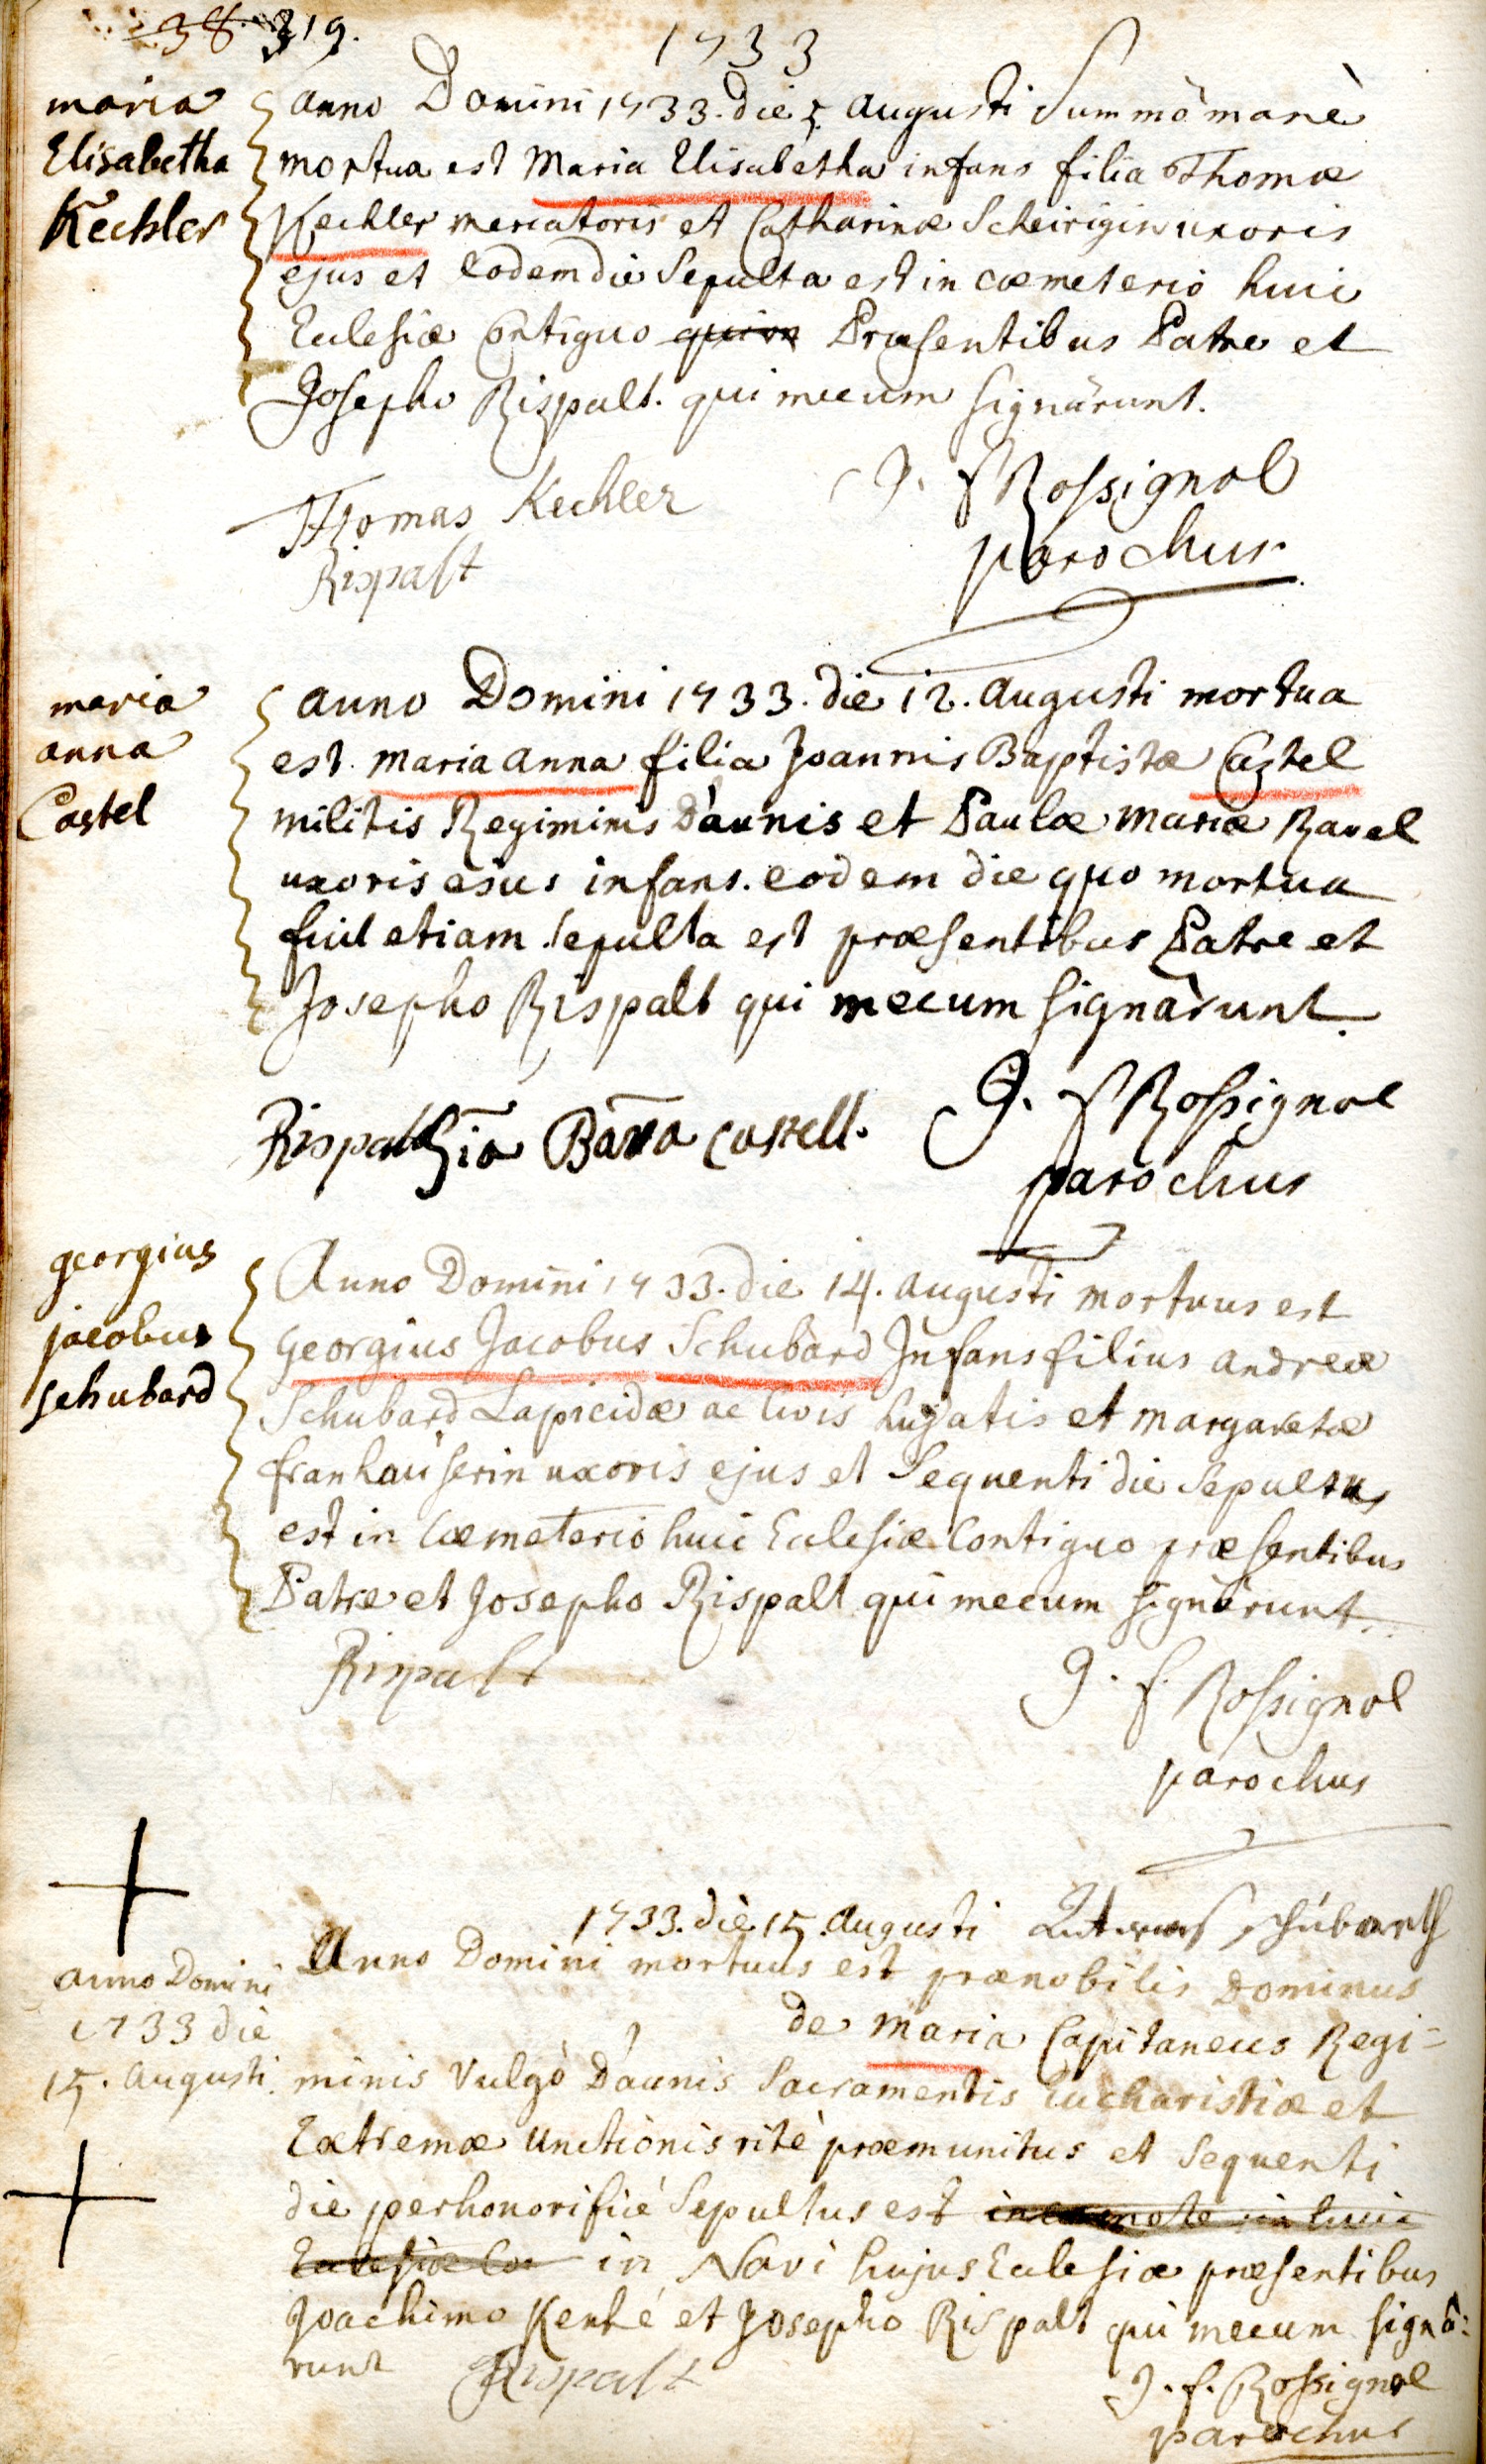 38. 319.
1733
maria
Elisabetha
Kechler
anno Domini 1733. die 5 augusti Summò manè
mortua est Maria Elisabetha infans filia Thomæ
Kechler mercatoris et Catharinæ Scheirigin uxoris
ejus et eodem die Sepulta est in cœmeterio huic
Ecclesiæ Contiguo Præsentibus Patre et
Josepho Rispalt. qui mecum signârunt.
Thomas Kechler
Rispalt
J. f Rossignol
parochus
maria
anna
Castel
anno Domini 1733. die 12. augusti mortua
est maria anna filia Joannis Baptistæ Castel
militis Regiminis Daunis et Paulæ Mariæ Ravel
uxoris ejus infans. eodem die quo mortua
fuit etiam Sepulta est præsentibus Patre et
Josepho Rispalt qui mecum signàrunt
Rispalt Gio Batta Castell.
J. f Rossignol
parochus
georgius
jacobus
schubard
Anno Domini 1733. die 14. augusti mortuus est
georgius Jacobus Schubard Infans filius andreæ
Schubard Lapicidæ ac Civis hujatis et margaretæ
franhauserin uxoris ejus et Sequenti die Sepultus
est in Cœmeterio huic Ecclesiæ Contiguo præsentibus
Patre et Josepho Rispalt qui mecum signàrunt
Rispalt
J. f. Rossignol
parochus
schubarth
anno Domini
1733 die
15. augusti
1733. die 15. augusti
Anno Domini mortuus est prænobilis Dominus
de maria Capitaneus Regi=
minis Vulgò Daunis Sacramentis Eucharistiæ et
Extremæ Unctionis ritè præmunitus et Sequenti
die perhonorificé Sepultus est
in Navi hujus Ecclesiæ præsentibus
Joachimo Kenhé et Josepho Rispalt qui mecum signâ:
runt Rispalt
J. f. Rossignol
parochus